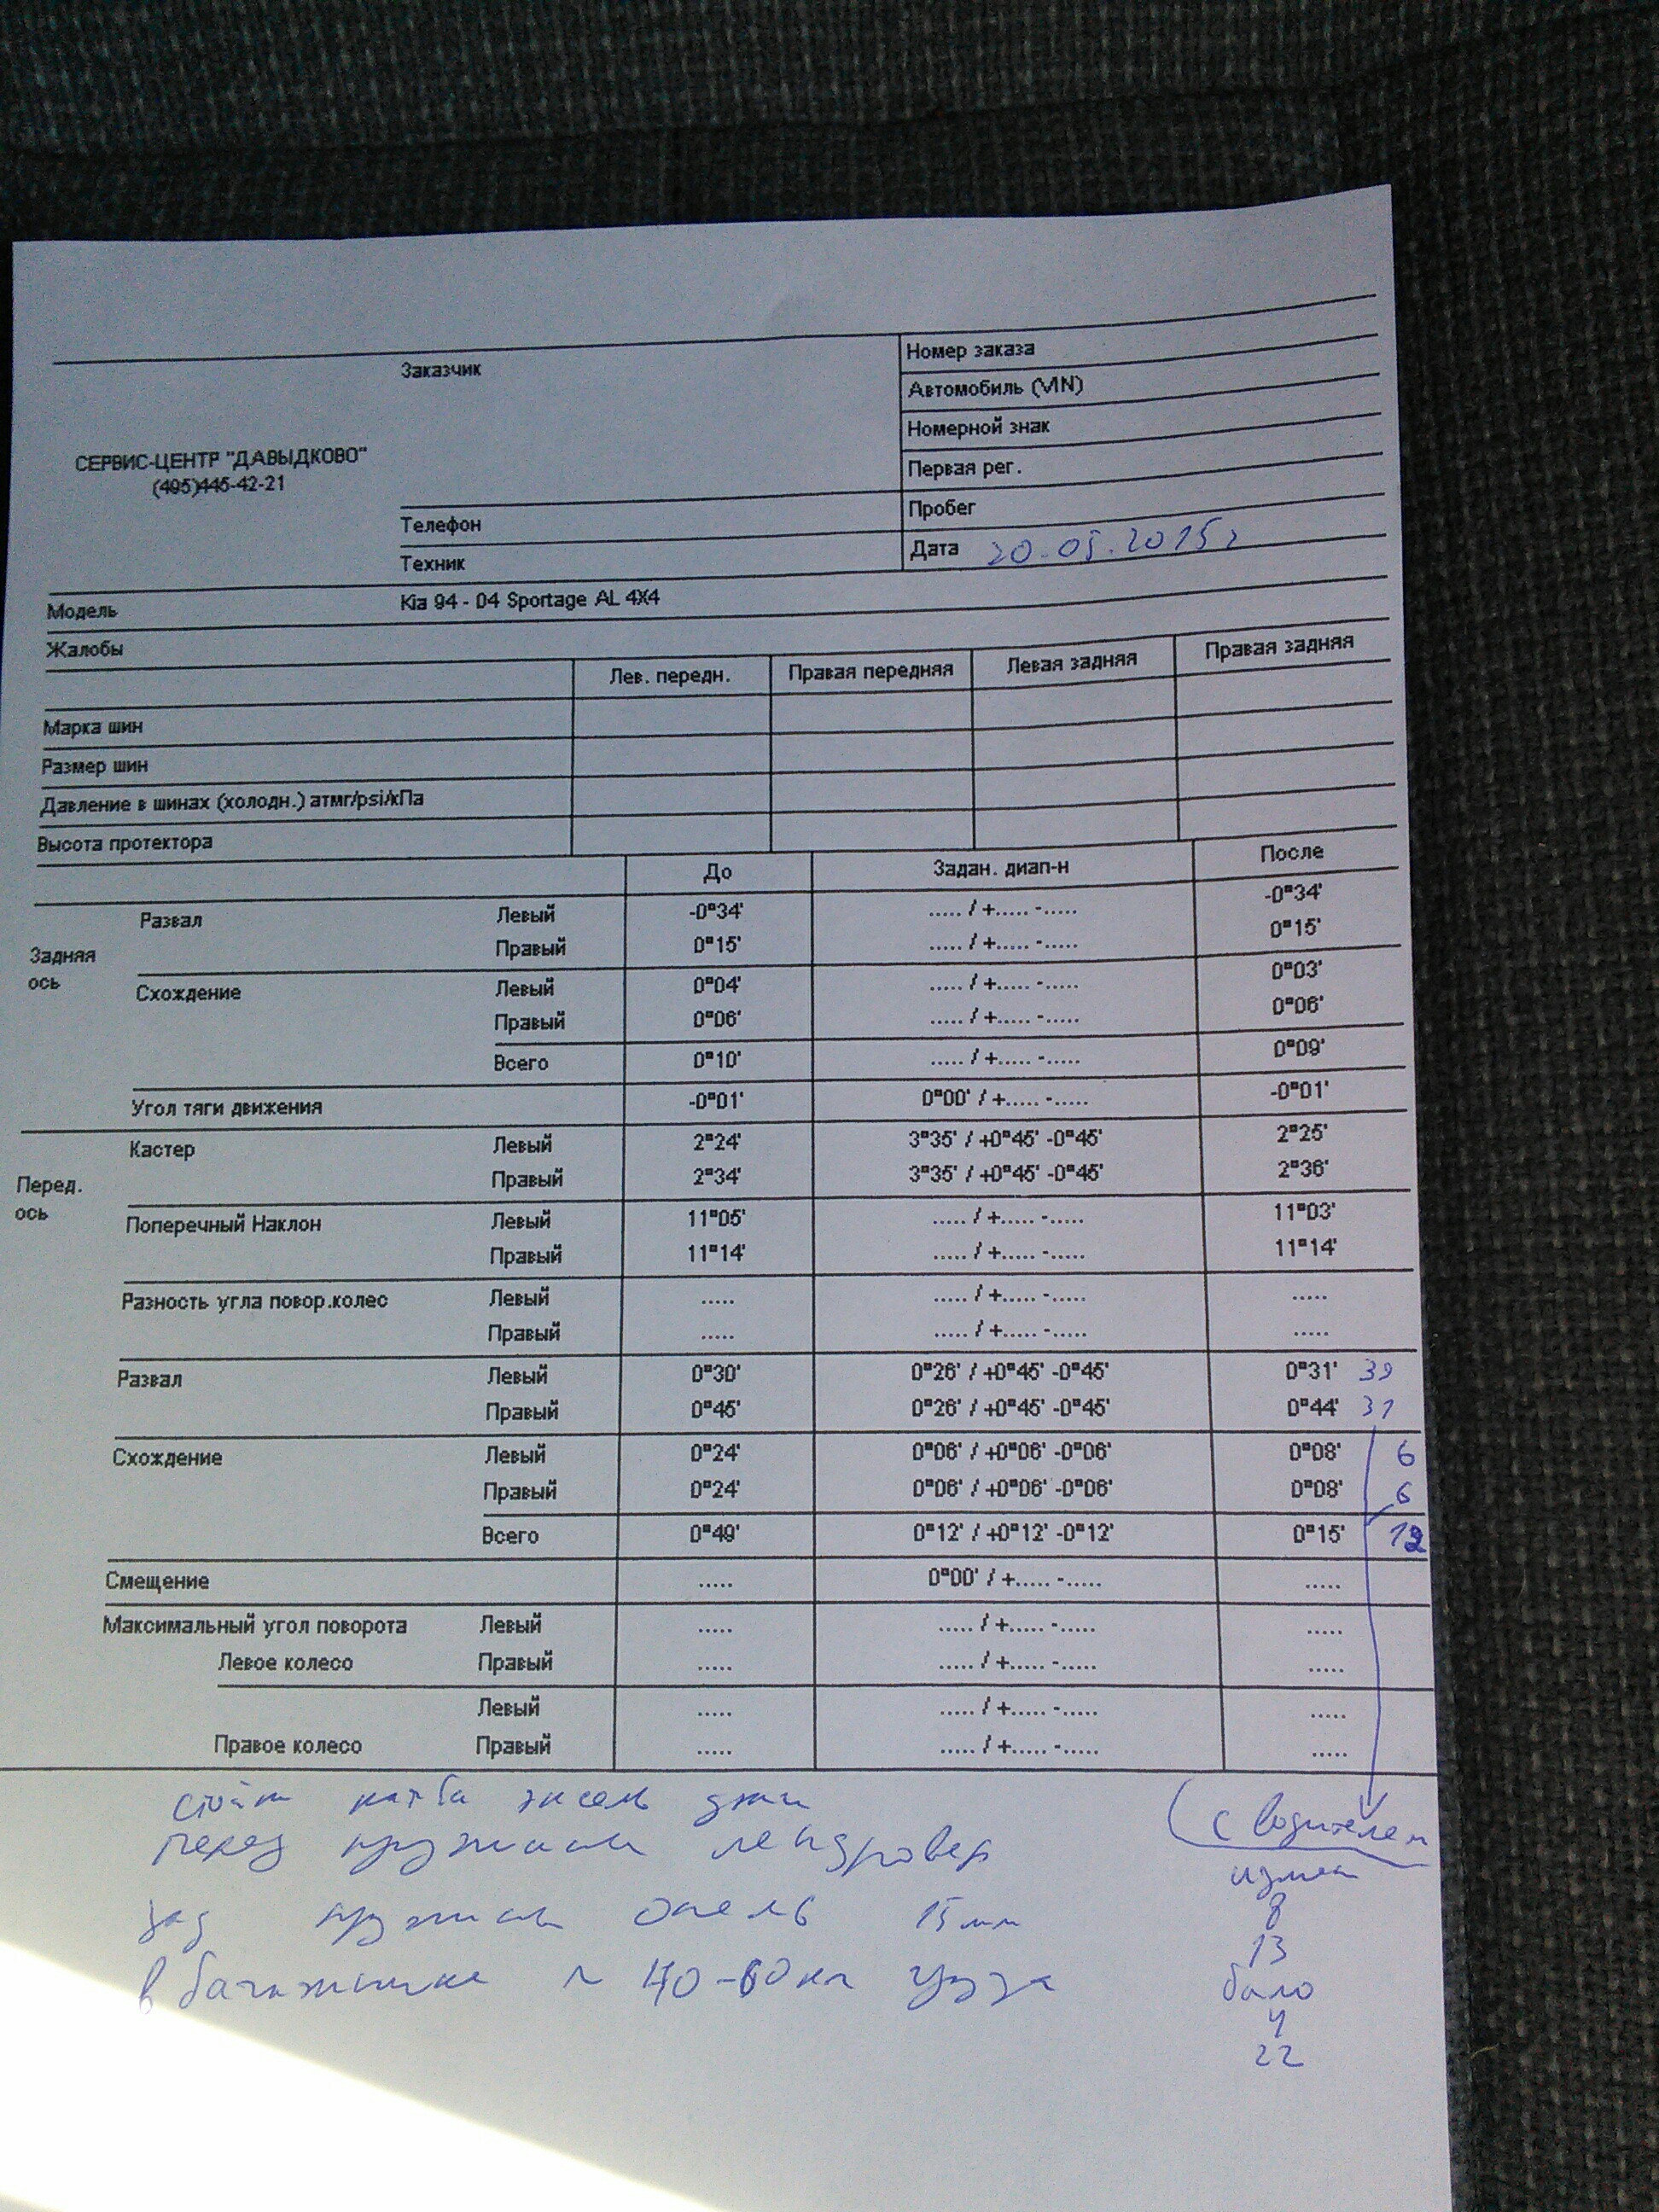 Заказчик
Номер заказа
Автомобиль (VIN)
Номерной знак
СЕРВИС-ЦЕНТР "ДАВЫДКОВО"
(495)445-42-21
Первая рег.
Телефон
Пробег
Техник
Дата 20.05.2015г
Модель Kia 94 - 04 Sportage AL 4X4
Жалобы
Лев. передн. Правая передняя Левая задняя Правая задняя
Марка шин
Размер шин
Давление в шинах (холодн.) атмг/psi/кПа
Высота протектора
До Задан. диап-н После
Задняя ось
Развал Левый -0°34' ..... / +..... -..... -0°34'
Правый 0°15' ..... / +..... -..... 0°15'
Схождение Левый 0°04' ..... / +..... -..... 0°03'
Правый 0°06' ..... / +..... -..... 0°06'
Всего 0°10' ..... / +..... -..... 0°09'
Угол тяги движения -0°01' 0°00' / +..... -..... -0°01'
Перед. ось
Кастер Левый 2°24' 3°35' / +0°45' -0°45' 2°25'
Правый 2°34' 3°35' / +0°45' -0°45' 2°36'
Поперечный Наклон Левый 11°05' ..... / +..... -..... 11°03'
Правый 11°14' ..... / +..... -..... 11°14'
Разность угла повор.колес Левый ..... ..... / +..... -..... .....
Правый ..... ..... / +..... -..... .....
Развал Левый 0°30' 0°26' / +0°45' -0°45' 0°31' 39
Правый 0°45' 0°26' / +0°45' -0°45' 0°44' 31
Схождение Левый 0°24' 0°06' / +0°06' -0°06' 0°08' 6
Правый 0°24' 0°06' / +0°06' -0°06' 0°08' 6
Всего 0°49' 0°12' / +0°12' -0°12' 0°15' 12
Смещение ..... 0°00' / +..... -..... .....
Максимальный угол поворота Левый ..... ..... / +..... -..... .....
Левое колесо Правый ..... ..... / +..... -..... .....
Левый ..... ..... / +..... -..... .....
Правое колесо Правый ..... ..... / +..... -..... .....
перед пружины лендровер
зад пружины опель 15мм
в багажнике груза
с водителем
8
13
было
4
22